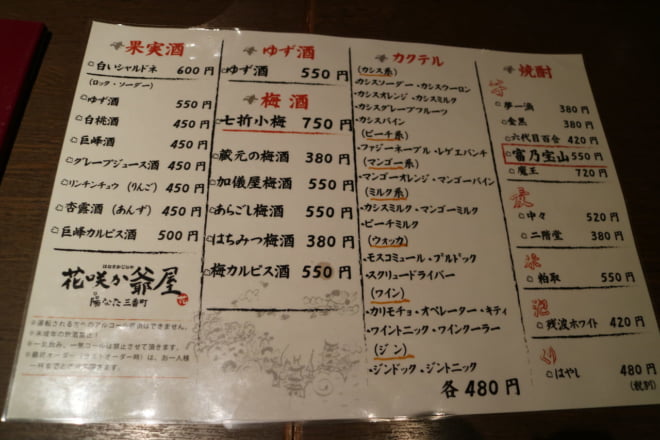 果実酒
白いシャルドネ 600円
(ロック・ソーダー)
ゆず酒 550円
白桃酒 450円
巨峰酒 450円
グレープジュース酒 450円
リンチンチュウ(りんご) 450円
杏露酒(あんず) 450円
巨峰カルピス酒 500円
花咲か爺屋
陽なた三番町
※未成年の飲酒禁止!
ゆず酒
ゆず酒 550円
梅酒
七折小梅 750円
蔵元の梅酒 380円
加儀屋梅酒 550円
あらごし梅酒 550円
はちみつ梅酒 380円
梅カルピス酒 550円
カクテル
(カシス系)
カシスソーダー・カシスウーロン
カシスオレンジ・カシスミルク
カシスグレープフルーツ
カシスパイン
(ピーチ系)
ファジーネーブル・レゲエパンチ
(マンゴー系)
マンゴーオレンジ・マンゴーパイン
(ミルク系)
カシスミルク・マンゴーミルク
ピーチミルク
(ウォッカ)
モスコミュール・ブルドック
スクリュードライバー
(ワイン)
カリモチョ・オペレーター・キティ
ワイントニック・ワインクーラー
(ジン)
ジンドック・ジントニック
各480円
焼酎
芋
夢一滴 380円
金黒 380円
六代目百合 420円
富乃宝山 550円
魔王 720円
麦
中々 520円
二階堂 380円
米
粕取 550円
泡
残波ホワイト 420円
くり
はやし 480円
(税別)